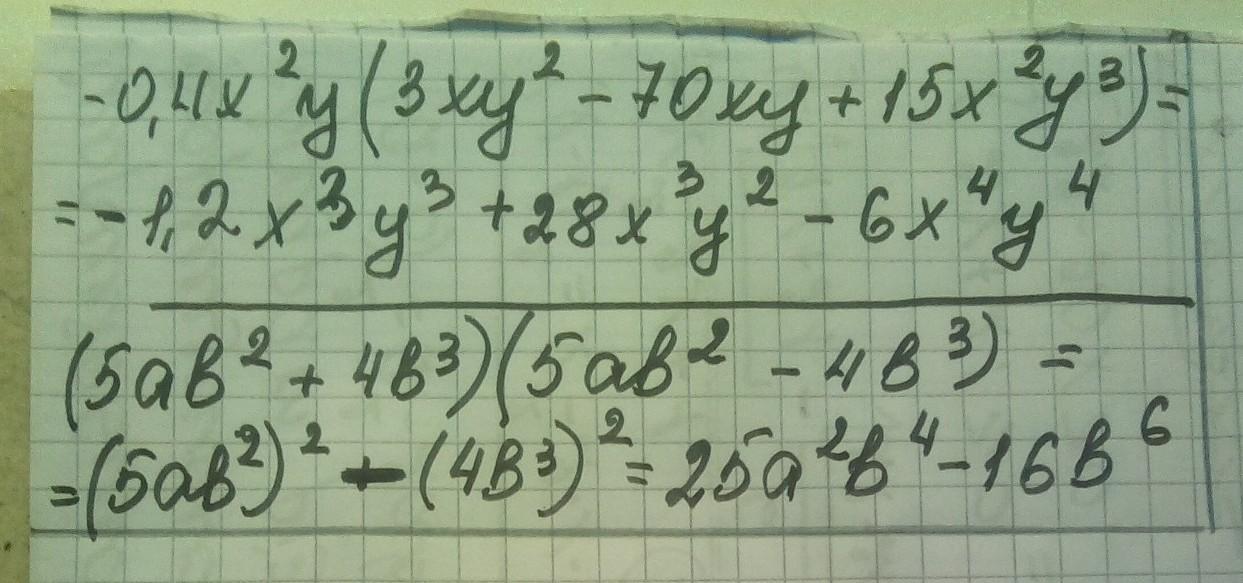 -0,4x²y(3xy² - 70xy + 15x²y³) =
= -1,2x³y³ + 28x³y² - 6x⁴y⁴
(5ав² + 4в³)(5ав² - 4в³) =
= (5ав²)² - (4в³)² = 25а²в⁴ - 16в⁶